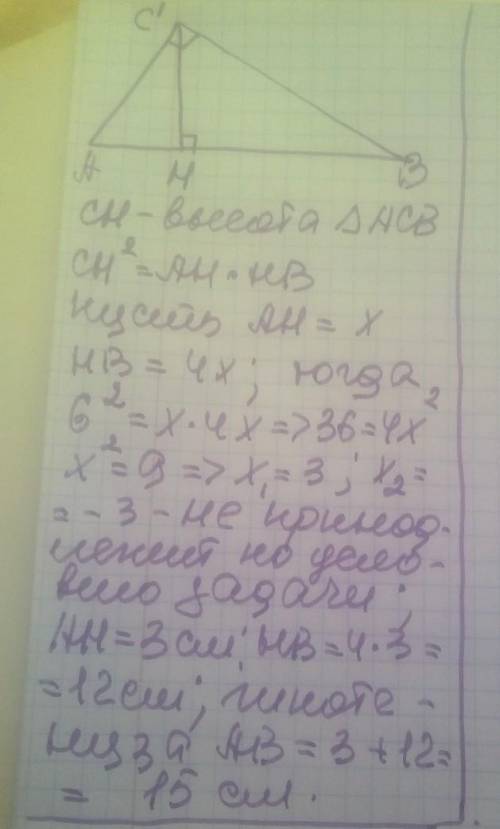 C
A H B
CH - высота △ACB
CH² = AH · HB
пусть AH = x
HB = 4x; тогда
6² = x · 4x => 36 = 4x²
x² = 9 => x₁ = 3; x₂ =
= -3 - не принод-
лежит по усло-
вию задачи;
AH = 3 см; HB = 4 · 3 =
= 12 см; гипоте-
нуза AB = 3 + 12 =
= 15 см.